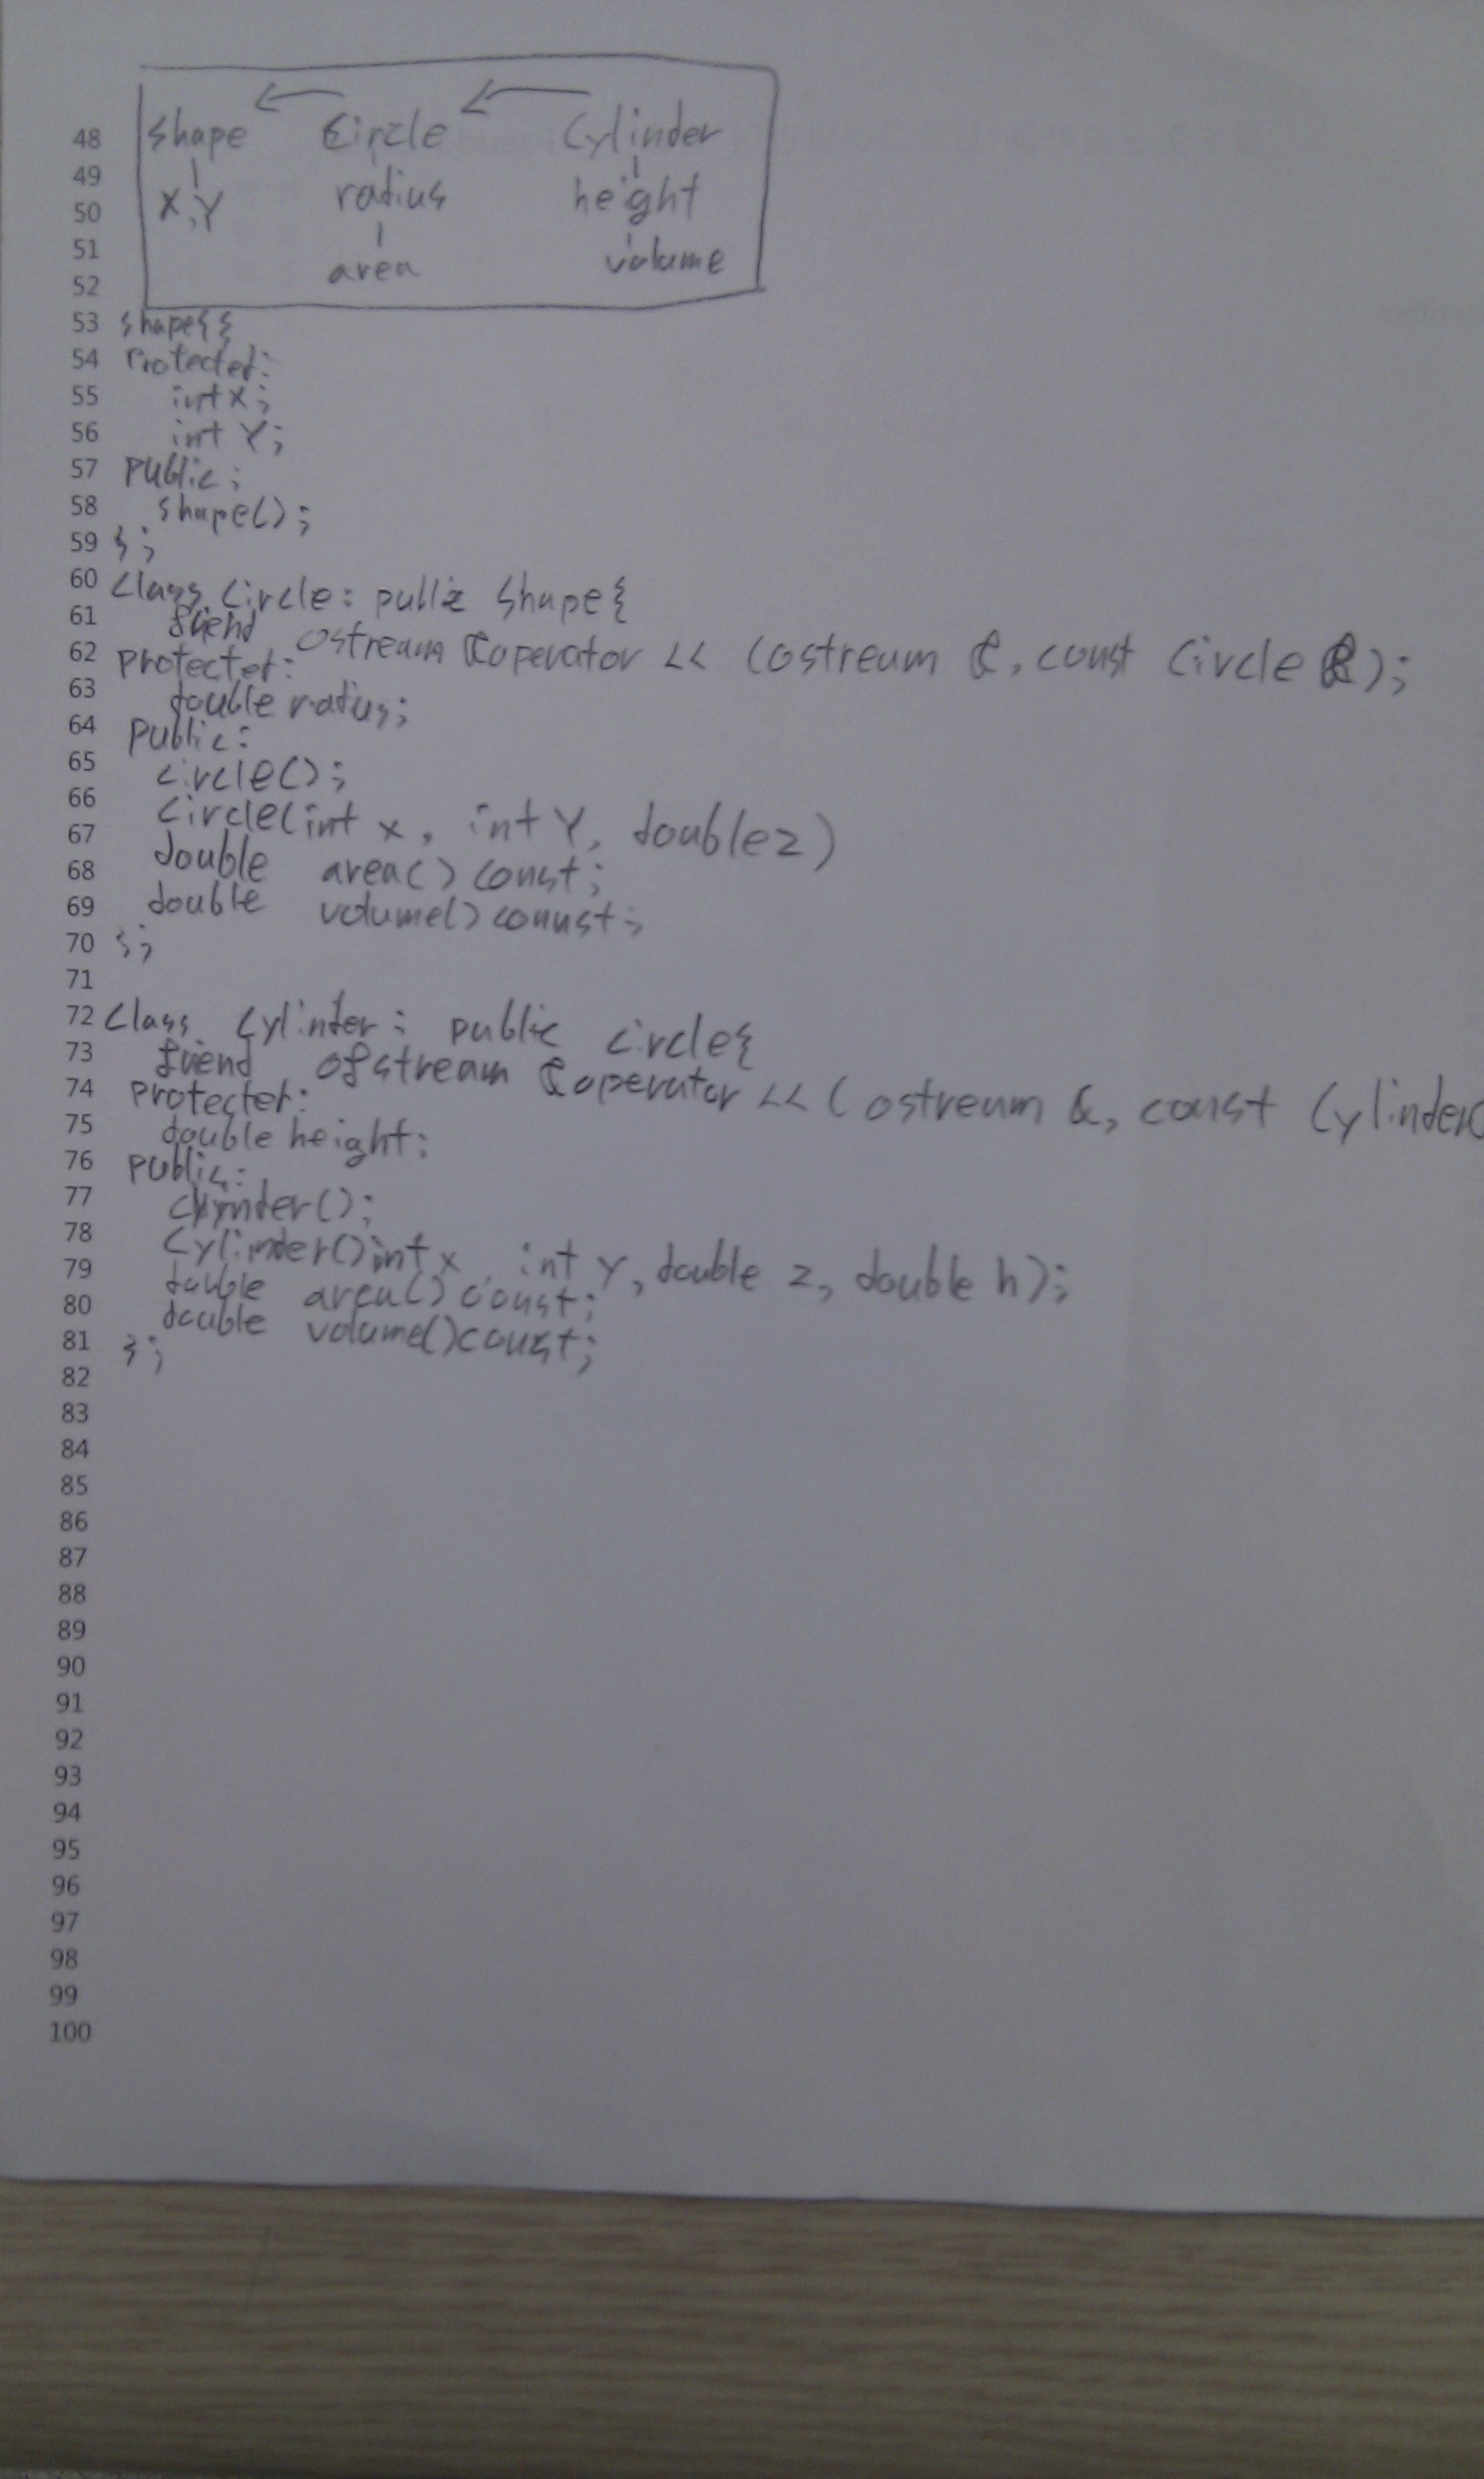 48 shape Circle Cylinder
49
50 X,Y radius height
51
52 area volume
53 shape{{
54 Protected:
55 int x;
56 int Y;
57 Public:
58 shape();
59 };
60 Class Circle: public Shape{
61 friend ostream &operator << (ostream &, const Circle &);
62 Protected:
63 double radius;
64 Public:
65 circle();
66 Circle(int x, int Y, double z)
67 double area() const;
68 double volume() connst;
69
70 };
71
72 Class Cylinder: public circle{
73 friend ofstream &operator << (ostream &, const Cylinder
74 Protected:
75 double height;
76 Public:
77 Cylinder();
78 Cylinder()int x int Y, double z, double h);
79 double area() const;
80 double volume()const;
81 };
82
83
84
85
86
87
88
89
90
91
92
93
94
95
96
97
98
99
100